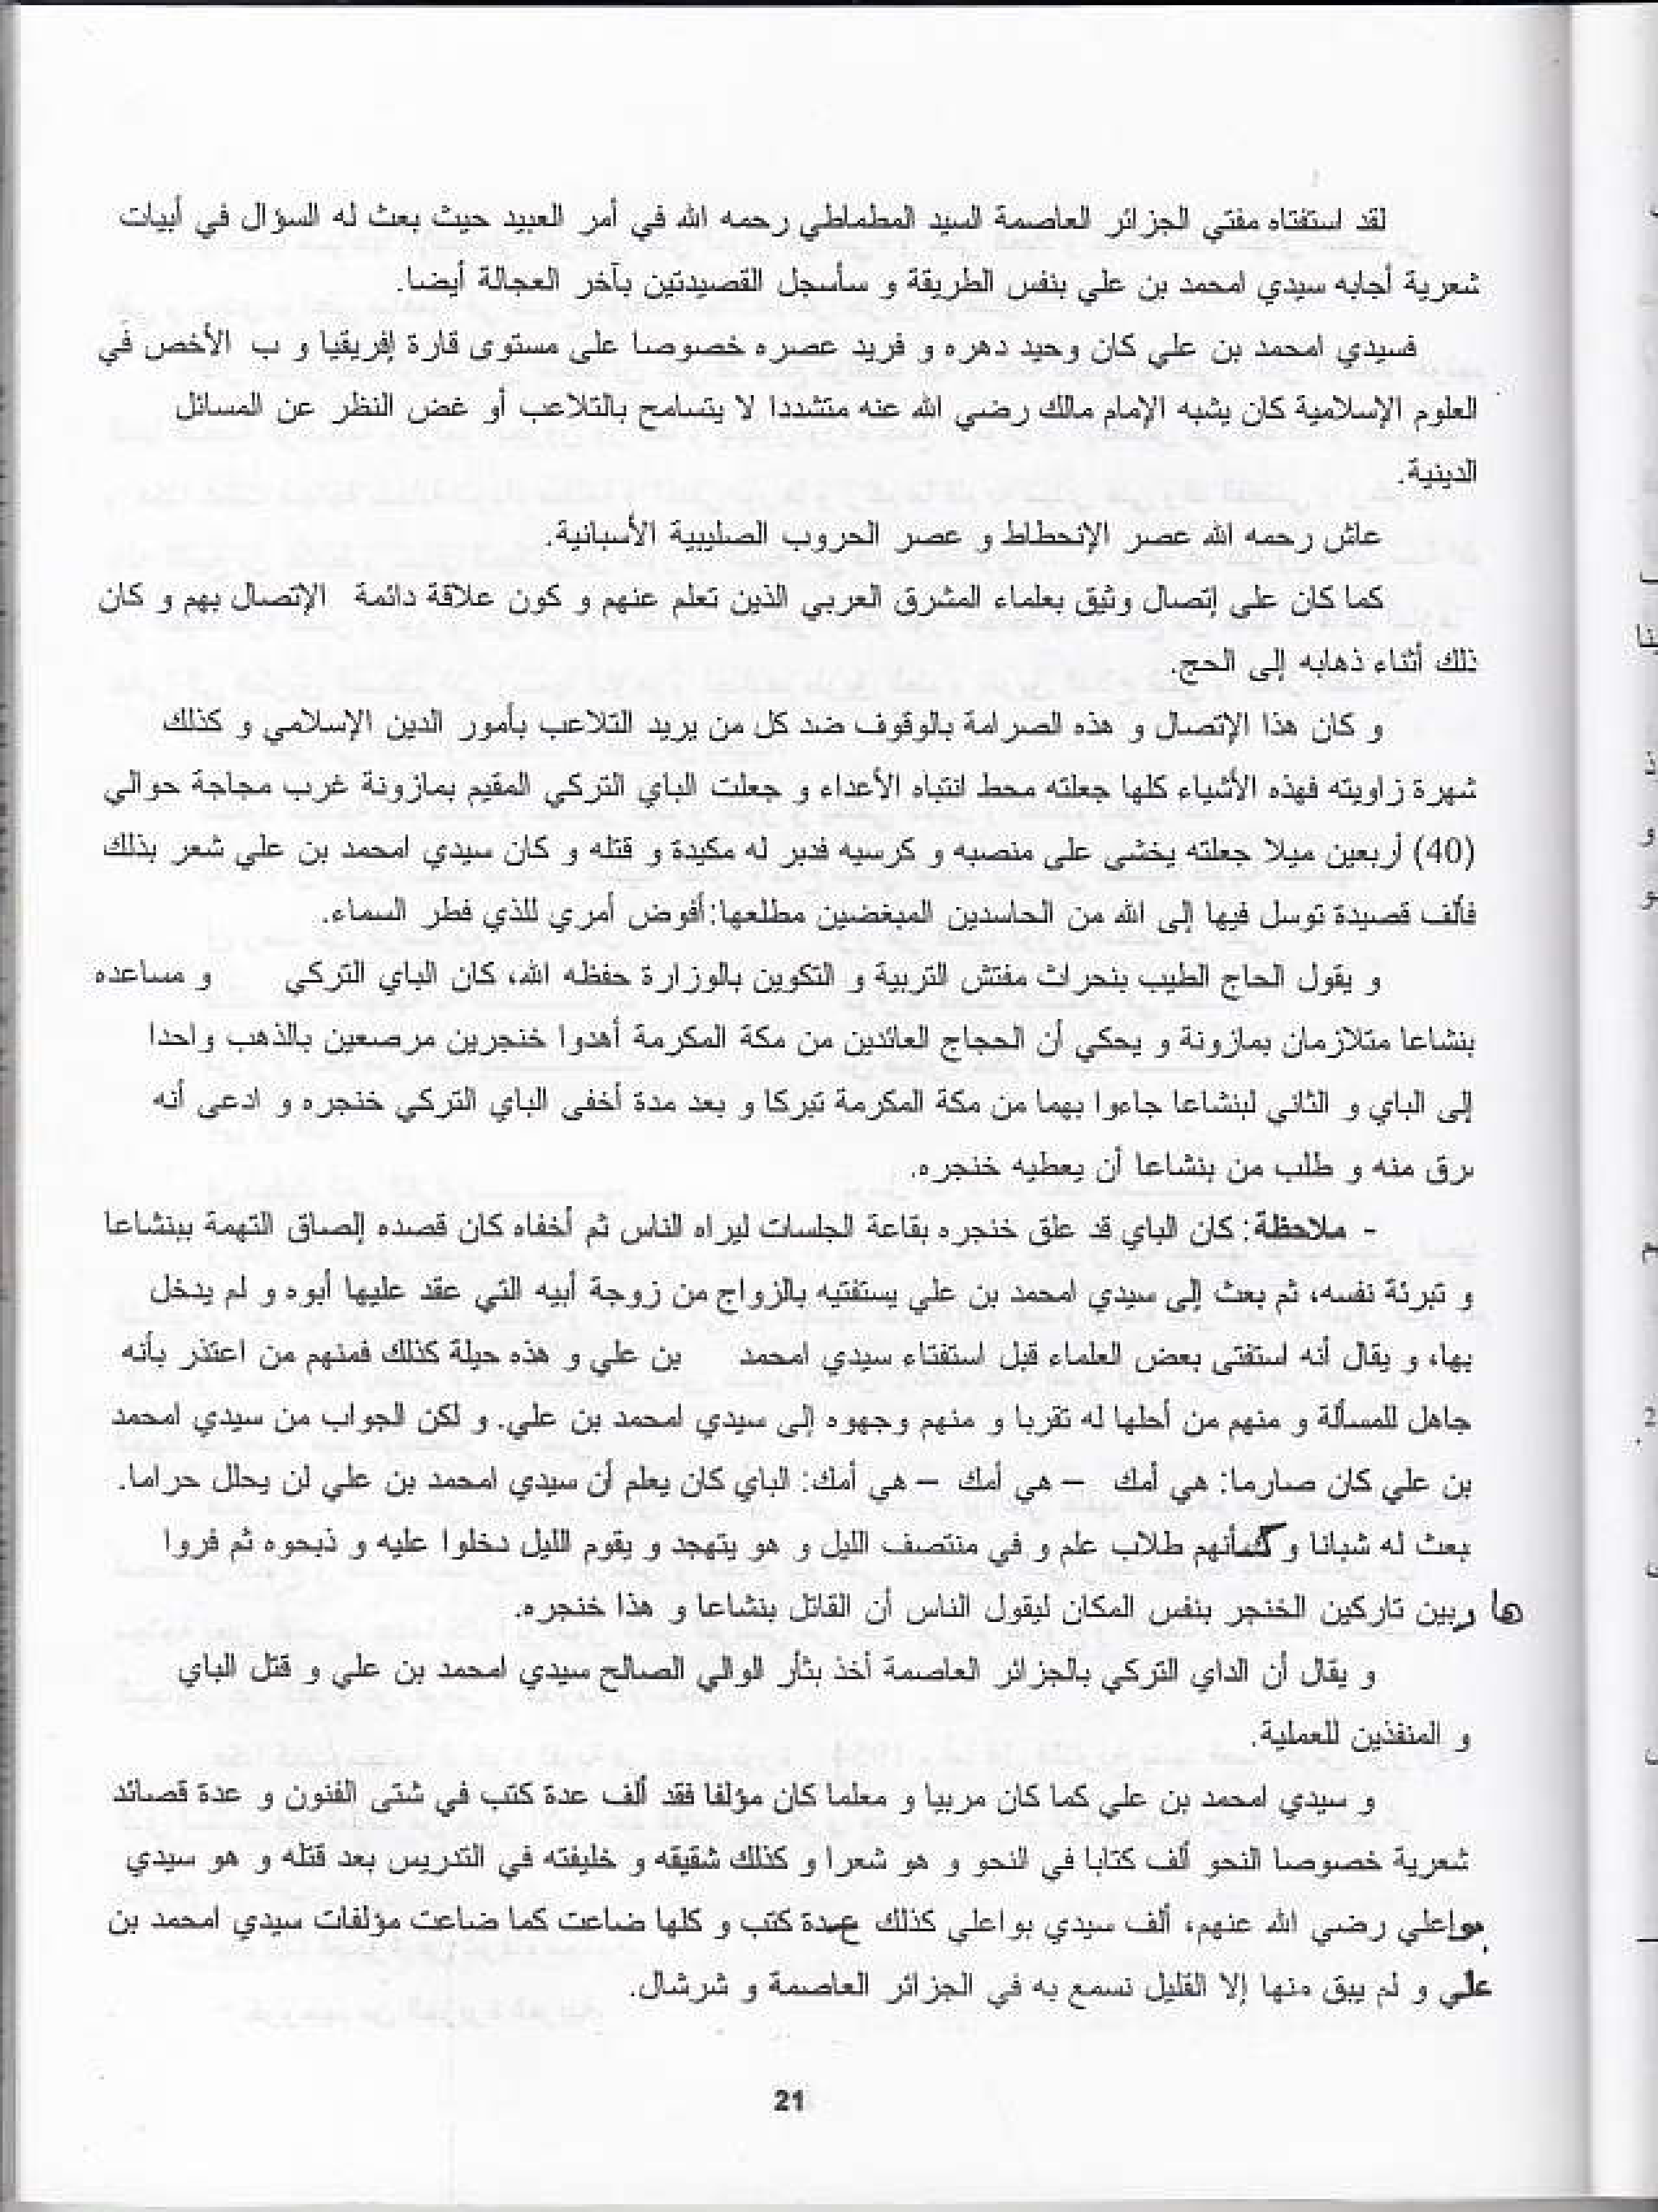 لقد استفتاه مفتي الجزائر العاصمة السيد المطماطي رحمه الله في أمر العبيد حيث بعث له السؤال في أبيات
شعرية أجابه سيدي امحمد بن علي بنفس الطريقة و سأسجل القصيدتين بآخر العجالة أيضا.
فسيدي امحمد بن علي كان وحيد دهره و فريد عصره خصوصا على مستوى قارة إفريقيا و ب الأخص في
العلوم الإسلامية كان يشبه الإمام مالك رضي الله عنه متشددا لا يتسامح بالتلاعب أو غض النظر عن المسائل
الدينية.
عاش رحمه الله عصر الإنحطاط و عصر الحروب الصليبية الأسبانية.
كما كان على إتصال وثيق بعلماء المشرق العربي الذين تعلم عنهم و كون علاقة دائمة الإتصال بهم و كان
ذلك أثناء ذهابه إلى الحج.
و كان هذا الإتصال و هذه الصرامة بالوقوف ضد كل من يريد التلاعب بأمور الدين الإسلامي و كذلك
شهرة زاويته فهذه الأشياء كلها جعلته محط انتباه الأعداء و جعلت الباي التركي المقيم بمازونة غرب مجاجة حوالي
(40) أربعين ميلا جعلته يخشى على منصبه و كرسيه فدبر له مكيدة و قتله و كان سيدي امحمد بن علي شعر بذلك
فألف قصيدة توسل فيها إلى الله من الحاسدين المبغضين مطلعها:أفوض أمري للذي فطر السماء.
و يقول الحاج الطيب بنحراث مفتش التربية و التكوين بالوزارة حفظه الله، كان الباي التركي و مساعده
بنشاعا متلازمان بمازونة و يحكي أن الحجاج العائدين من مكة المكرمة أهدوا خنجرين مرصعين بالذهب واحدا
إلى الباي و الثاني لبنشاعا جاءوا بهما من مكة المكرمة تبركا و بعد مدة أخفى الباي التركي خنجره و ادعى أنه
سرق منه و طلب من بنشاعا أن يعطيه خنجره.
- ملاحظة: كان الباي قد علق خنجره بقاعة الجلسات ليراه الناس ثم أخفاه كان قصده إلصاق التهمة ببنشاعا
و تبرئة نفسه، ثم بعث إلى سيدي امحمد بن علي يستفتيه بالزواج من زوجة أبيه التي عقد عليها أبوه و لم يدخل
بها، و يقال أنه استفتى بعض العلماء قبل استفتاء سيدي امحمد بن علي و هذه حيلة كذلك فمنهم من اعتذر بأنه
جاهل للمسألة و منهم من أحلها له تقربا و منهم وجهوه إلى سيدي امحمد بن علي. و لكن الجواب من سيدي امحمد
بن علي كان صارما: هي أمك – هي أمك – هي أمك: الباي كان يعلم أن سيدي امحمد بن علي لن يحلل حراما.
بعث له شبانا و كأنهم طلاب علم و في منتصف الليل و هو يتهجد و يقوم الليل دخلوا عليه و ذبحوه ثم فروا
هاربين تاركين الخنجر بنفس المكان ليقول الناس أن القاتل بنشاعا و هذا خنجره.
و يقال أن الداي التركي بالجزائر العاصمة أخذ بثأر الوالي الصالح سيدي امحمد بن علي و قتل الباي
و المنفذين للعملية.
و سيدي امحمد بن علي كما كان مربيا و معلما كان مؤلفا فقد ألف عدة كتب في شتى الفنون و عدة قصائد
شعرية خصوصا النحو ألف كتابا في النحو و هو شعرا و كذلك شقيقه و خليفته في التدريس بعد قتله و هو سيدي
بواعلي رضي الله عنهم، ألف سيدي بواعلي كذلك عدة كتب و كلها ضاعت كما ضاعت مؤلفات سيدي امحمد بن
علي و لم يبق منها إلا القليل نسمع به في الجزائر العاصمة و شرشال.
21